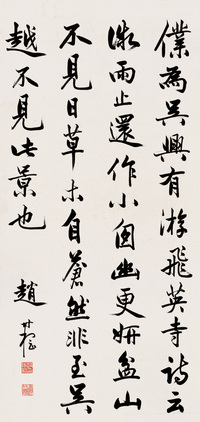 僕為吳興有游飛英寺詩云
微雨止還作小囱幽更妍盆山
不見日草木自蒼然非至吳
越不見此景也
趙